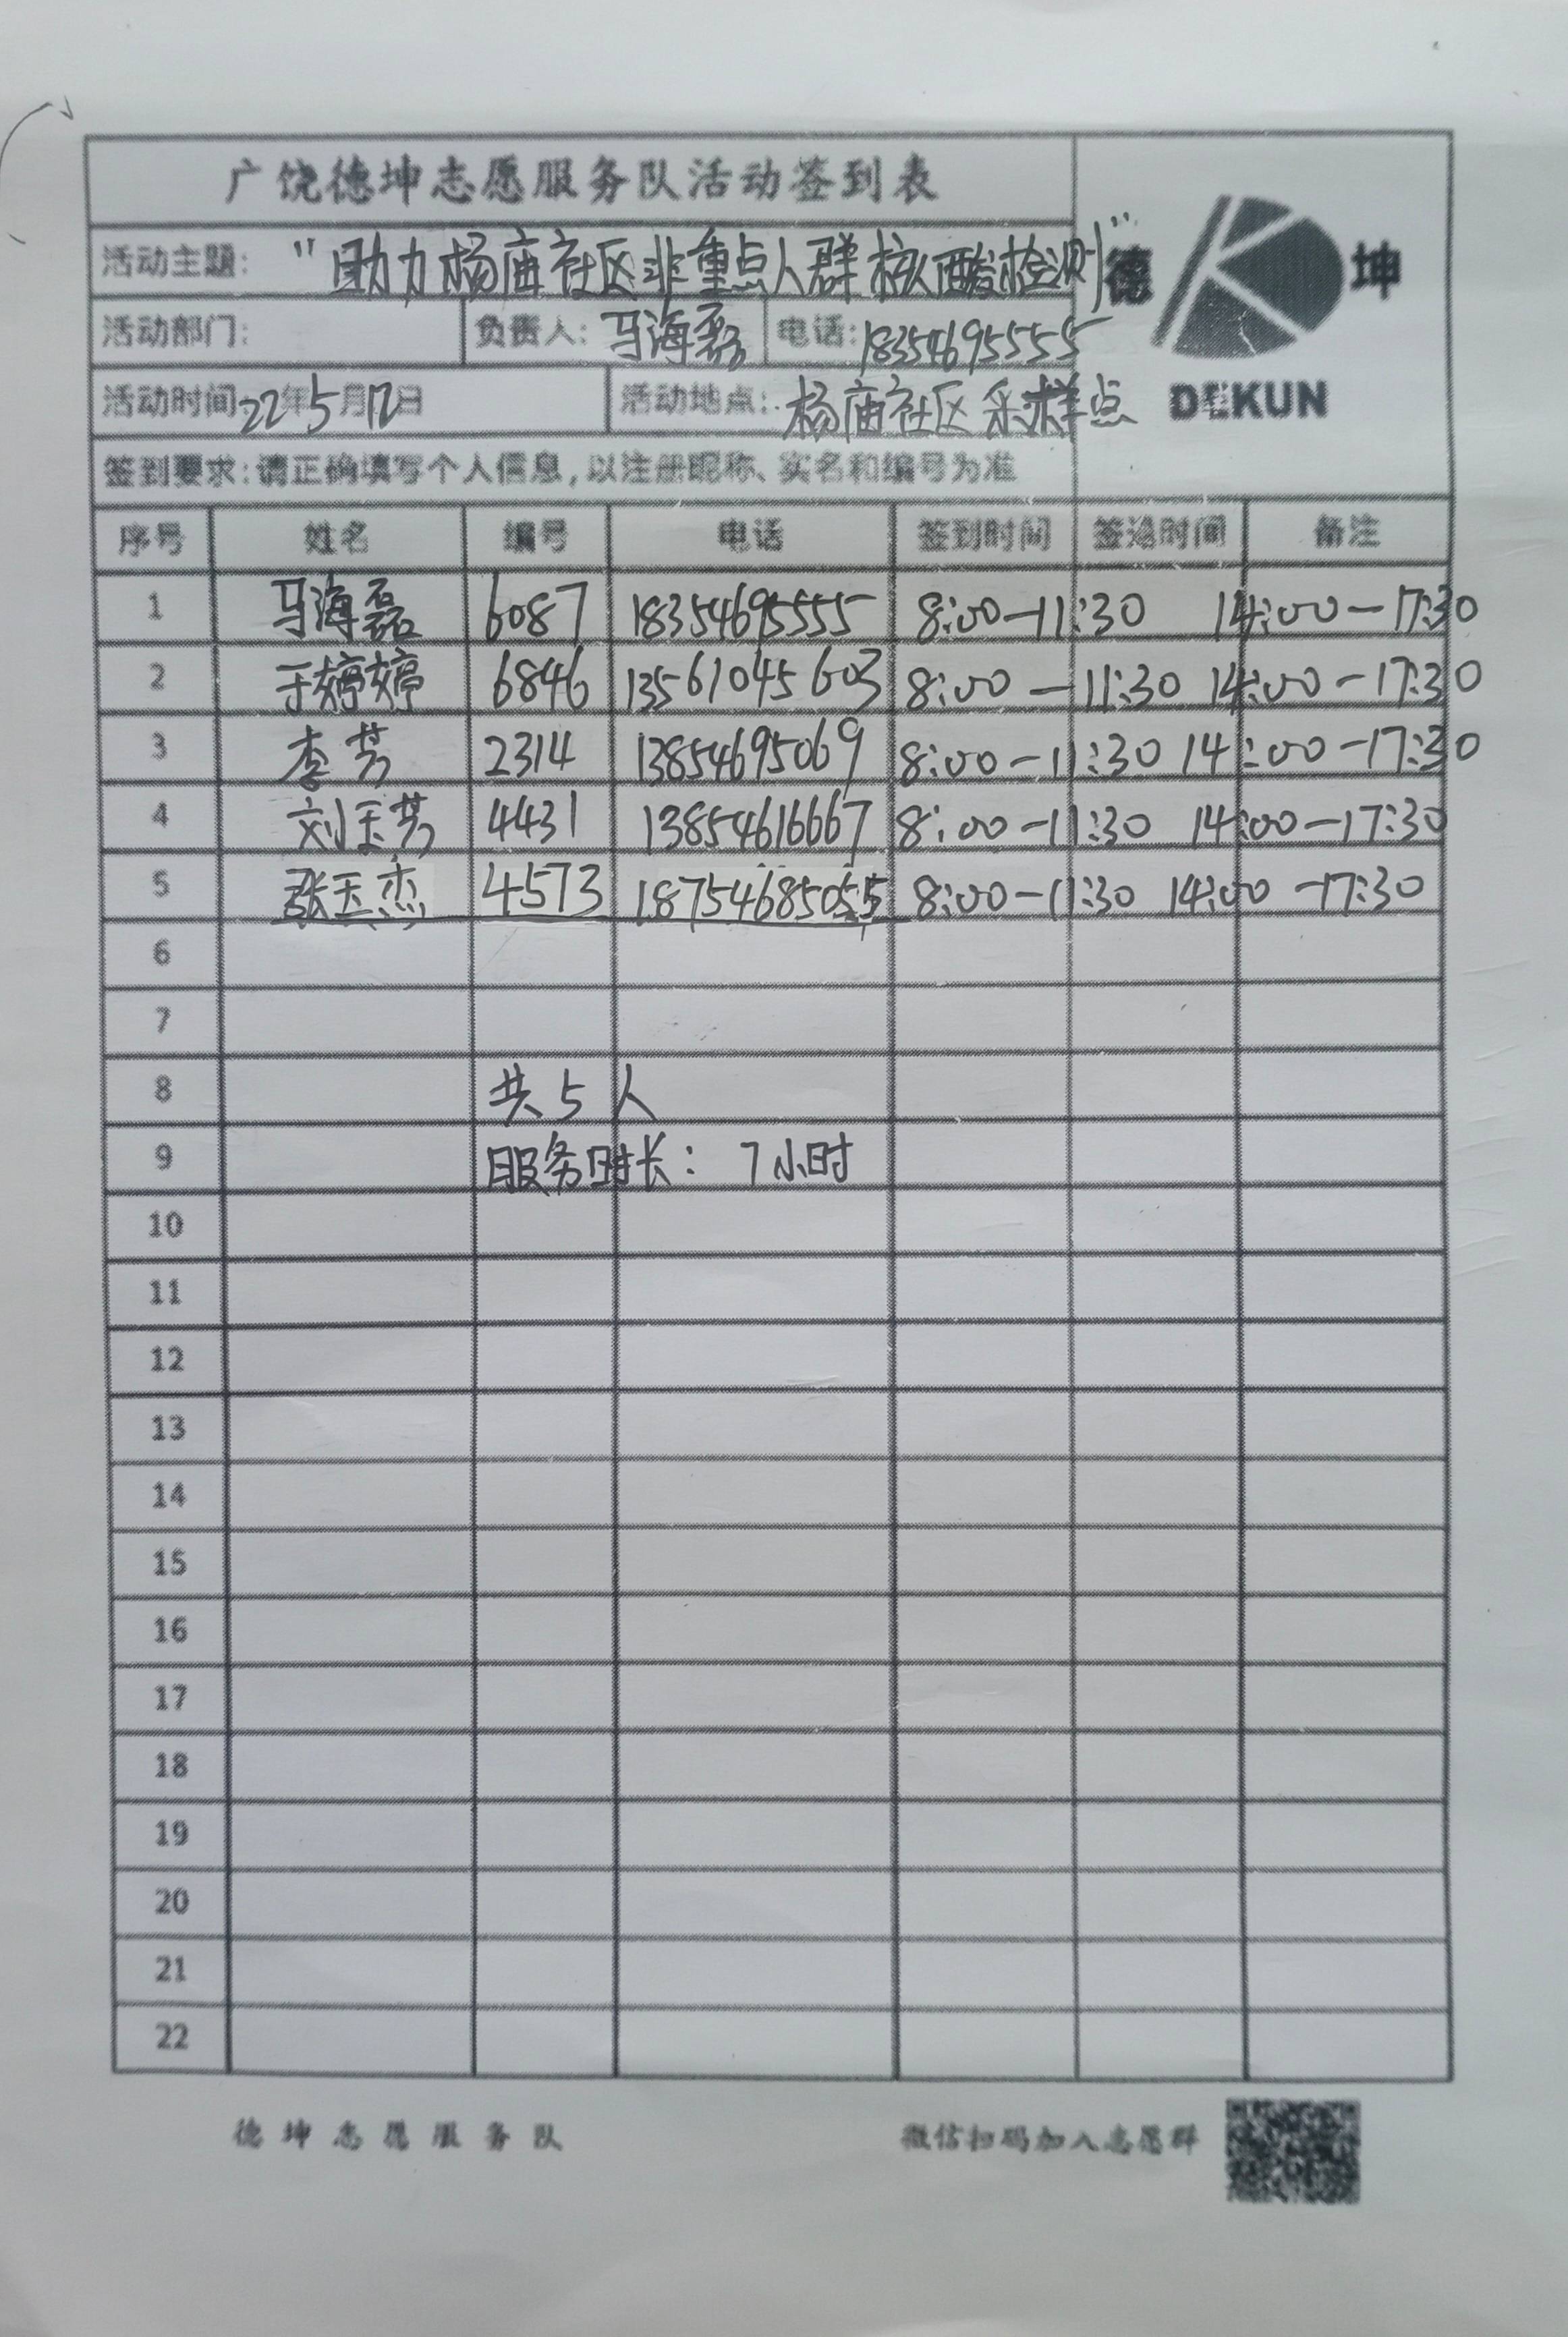 广饶德坤志愿服务队活动签到表
活动主题: "助力杨庙社区非重点人群核酸检测"
德 坤
DEKUN
活动部门: 负责人: 马海磊 电话: 18354695555
活动时间 22年5月12日 活动地点: 杨庙社区采样点
签到要求:请正确填写个人信息,以注册昵称、实名和编号为准
序号 姓名 编号 电话 签到时间 签退时间 备注
1 马海磊 6087 18354695555 8:00-11:30 14:00-17:30
2 于婷婷 6846 13561045603 8:00-11:30 14:00-17:30
3 李芳 2314 13854695069 8:00-11:30 14:00-17:30
4 刘玉芳 4431 13854616667 8:00-11:30 14:00-17:30
5 张玉杰 4573 18754685055 8:00-11:30 14:00-17:30
6
7
8 共5人
9 服务时长: 7小时
10
11
12
13
14
15
16
17
18
19
20
21
22
德坤志愿服务队 微信扫码加入志愿群